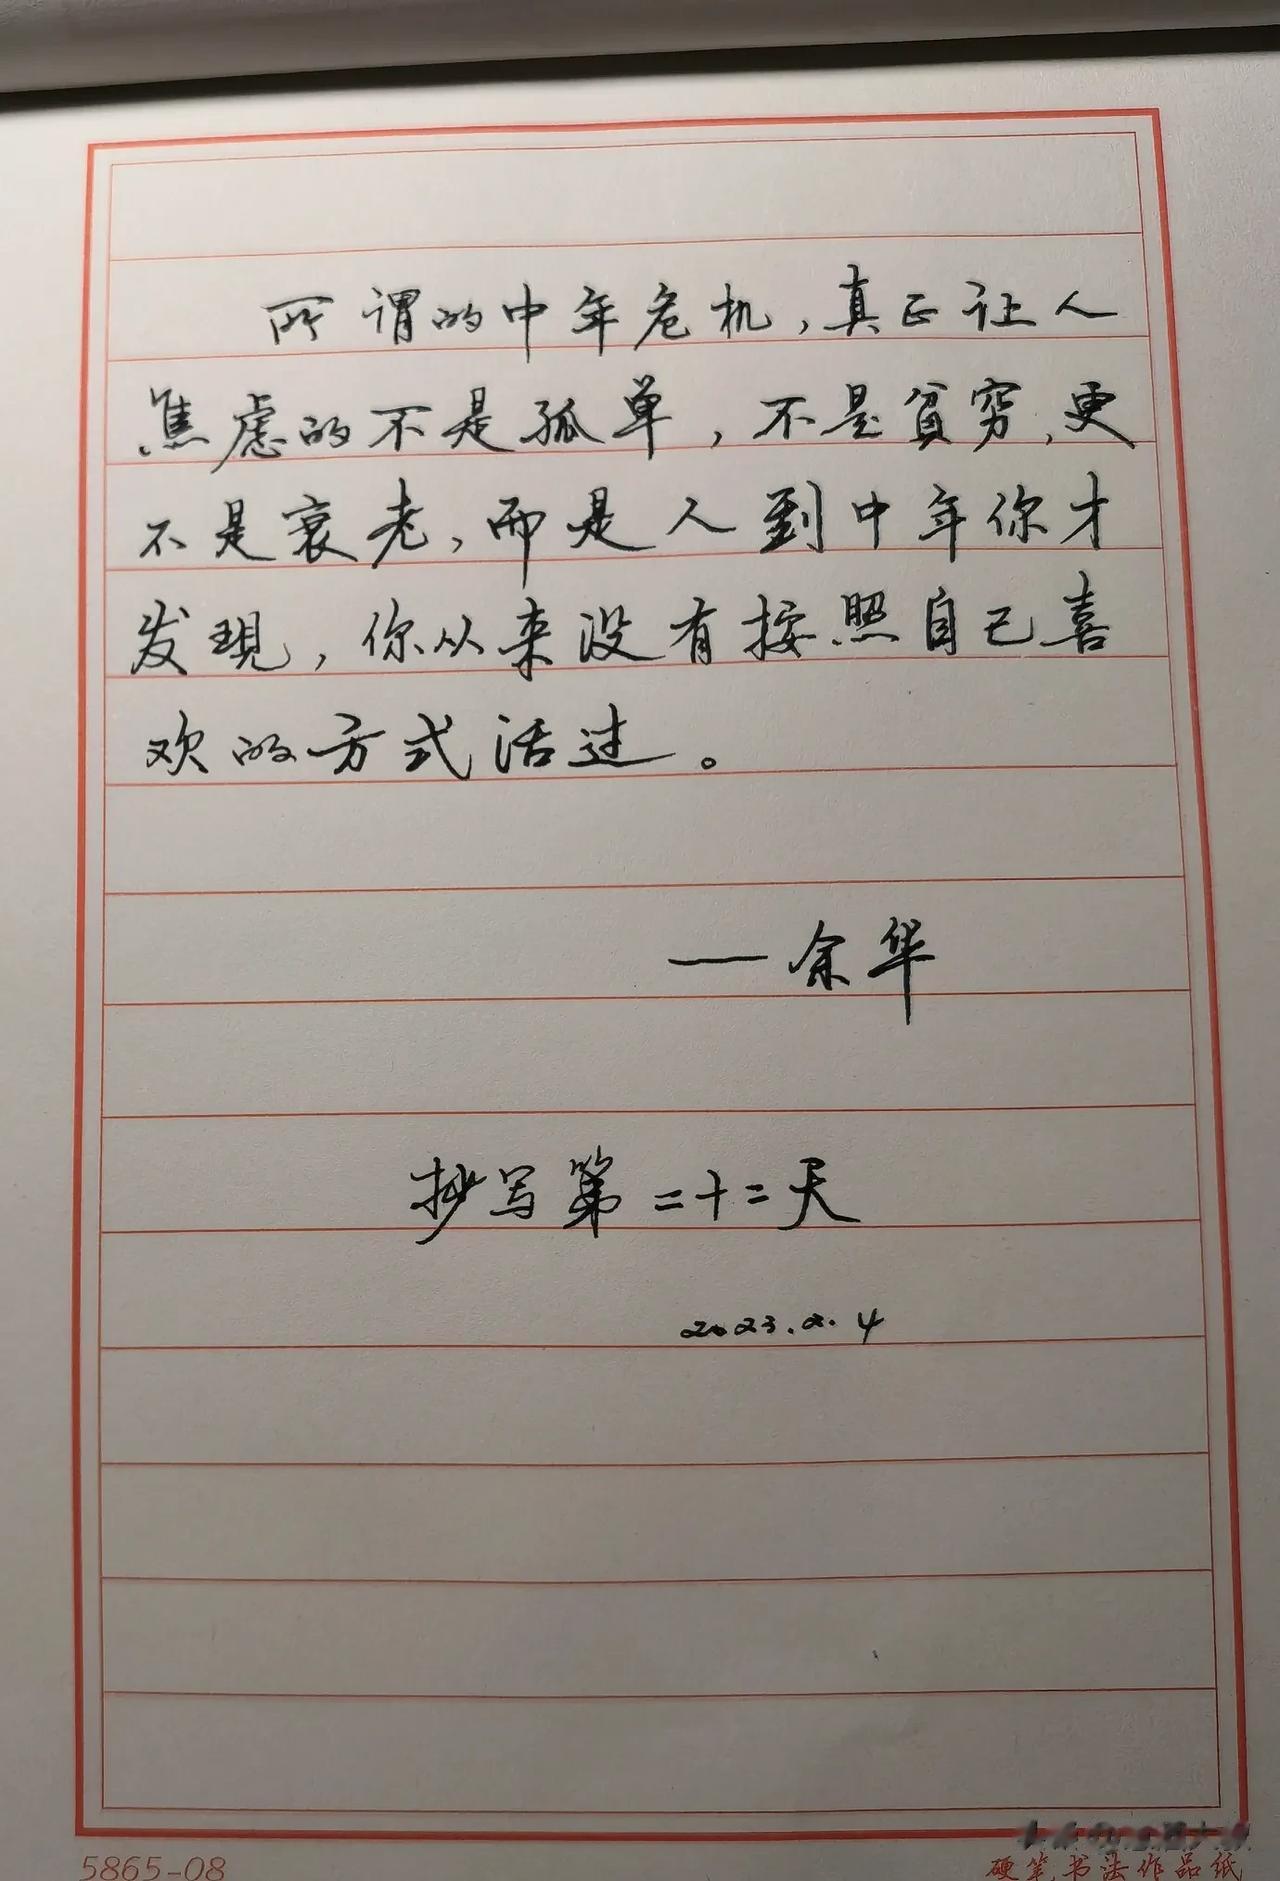 所谓的中年危机，真正让人
焦虑的不是孤单，不是貧穷，更
不是衰老，而是人到中年你才
发現，你从来没有按照自己喜
欢的方式活过。
—余华
抄写第二十二天
2023.2.4
5865-08
硬笔书法作品纸